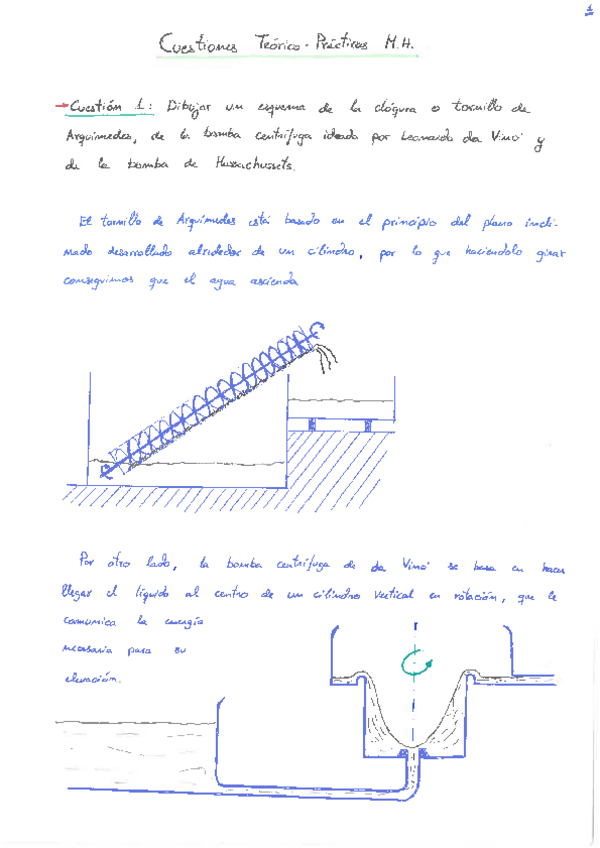 1
Cuestiones Teórico-Prácticas M.H.
→Cuestión 1: Dibujar un esquema de la clógura o tornillo de
Arquímedes, de la bomba centrífuga ideada por Leonardo da Vinci y
de la bomba de Massachussets.
El tornillo de Arquímedes está basado en el principio del plano incli-
nado desarrollado alrededor de un cilindro, por lo que haciéndolo girar
conseguimos que el agua ascienda
Por otro lado, la bomba centrífuga de da Vinci se basa en hacer
llegar el líquido al centro de un cilindro vertical en rotación, que le
comunica la energía
necesaria para su
elevación.